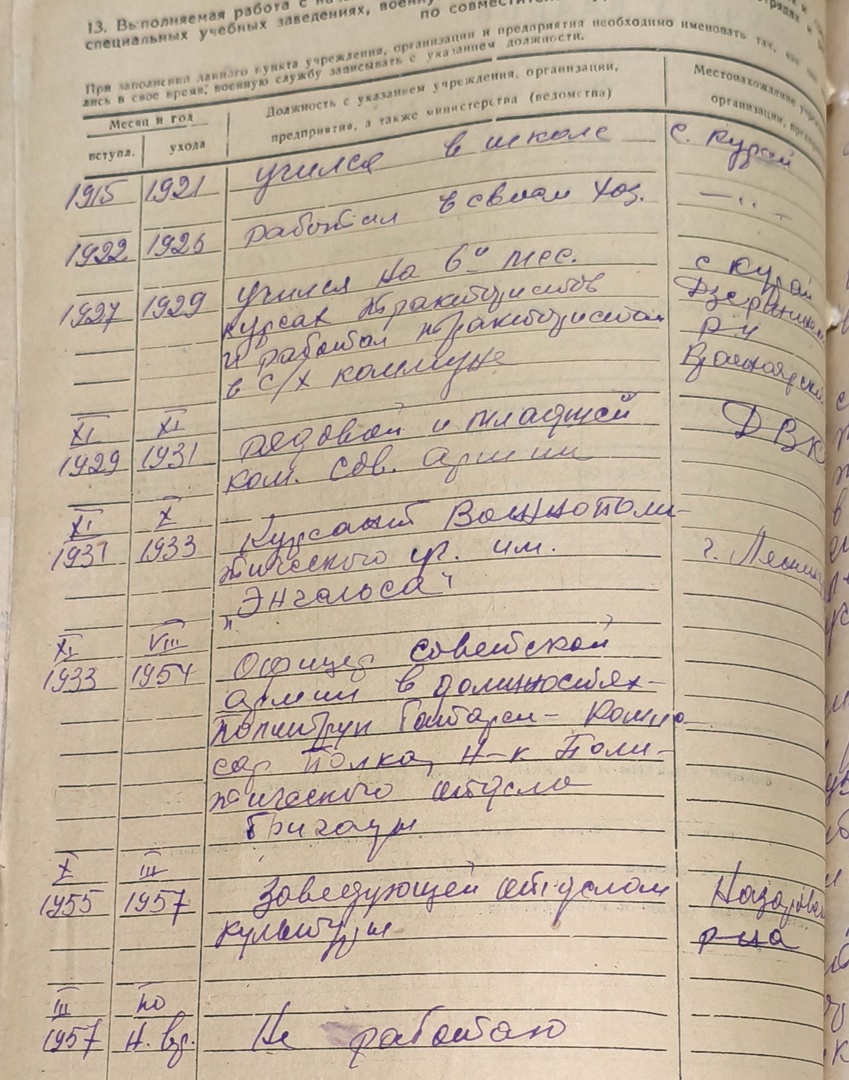 13. Выполняемая работа с
специальных учебных заведениях,
по совместительству
При заполнении данного пункта учреждения, организации и предприятия необходимо именовать так, как они
лись в свое время, военную службу записывать с указанием должности.
Месяц и год
вступл. ухода
Должность с указанием учреждения, организации,
предприятия, а также министерства (ведомства)
Местонахождение
организации,
1915 1921 учился в школе с. Курай
1922 1926 работал в своем хоз. — „ —
1927 1929 учился на 6и мес. с Курай
курсах трактористов Дзержинск
и работал трактористом р-н
в с/х коммуне Красноярск
XI XI
1929 1931 рядовой и младшей ДВК
ком. Сов. армии
XI X
1931 1933 Курсант Военнополи-
тического уч. им. г. Ленинг
"Энгельса"
XI VIII
1933 1954 Офицер советской
армии в должностях-
политрук батареи - Комис-
сар Полка, Н-к Поли-
тического отдела
бригады
X III
1955 1957 Заведующей отделом Назаров
культуры р-на
III по
1957 Н. вр. Не работаю